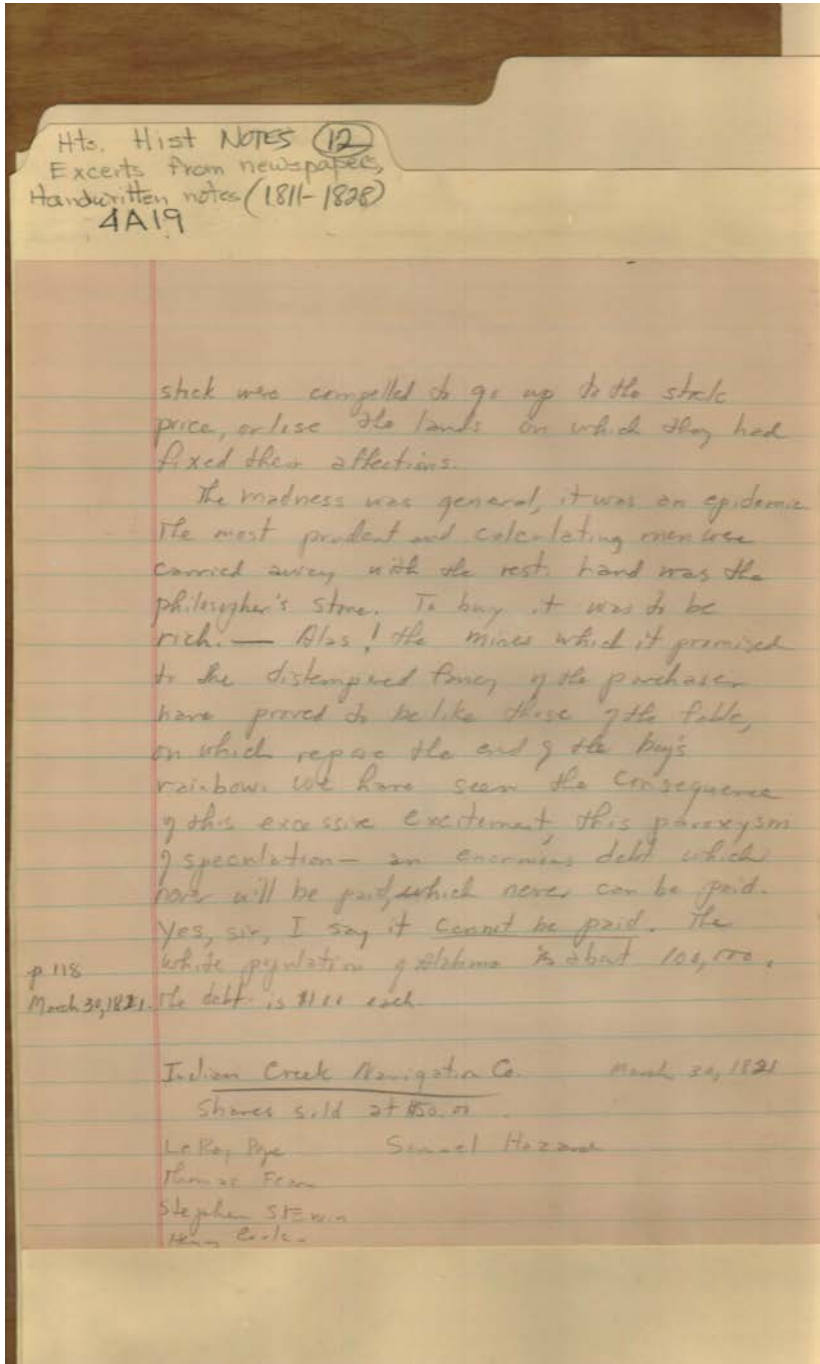 Hts. Hist NOTES (12)
Excerts from newspapers,
Handwritten notes (1811-1828)
4A19
stock were compelled to go up to the stock
price, or lose the lands on which they had
fixed their affections.
The madness was general, it was an epidemic
The most prudent and calculating men were
carried away with the rest. Land was the
philosopher's stone. To buy it was to be
rich. — Alas! the mines which it promised
to the distempered fancy of the purchaser
have proved to be like those of the fable,
on which repose the end of the boy's
rainbow. We have seen the consequence
of this excessive excitement, this paroxysm
of speculation — an enormous debt which
never will be paid, which never can be paid.
Yes, sir, I say it cannot be paid. The
p 118
white population of Alabama is about 100,000.
March 30, 1821. The debt is $100 each.
Indian Creek Navigation Co. March 30, 1821
Shares sold at $50.00.
LeRoy Pope Samuel Hazard
Thomas Fearn
Stephen S Ewin
Henry